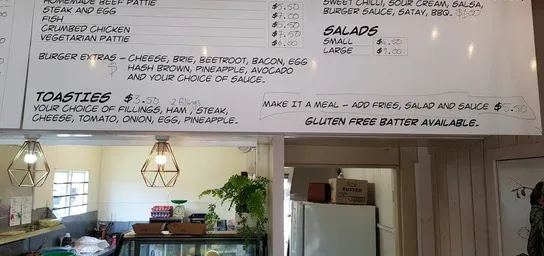 HOMEMADE BEEF PATTIE $5.50
STEAK AND EGG
FISH
CRUMBED CHICKEN
VEGETARIAN PATTIE
BURGER EXTRAS - CHEESE, BRIE, BEETROOT, BACON, EGG
HASH BROWN, PINEAPPLE, AVOCADO
AND YOUR CHOICE OF SAUCE.
TOASTIES $3.50
YOUR CHOICE OF FILLINGS, HAM, STEAK,
CHEESE, TOMATO, ONION, EGG, PINEAPPLE.
SWEET CHILLI, SOUR CREAM, SALSA,
BURGER SAUCE, SATAY, BBQ.
SALADS
SMALL
LARGE
MAKE IT A MEAL - ADD FRIES, SALAD AND SAUCE $5.50
GLUTEN FREE BATTER AVAILABLE.